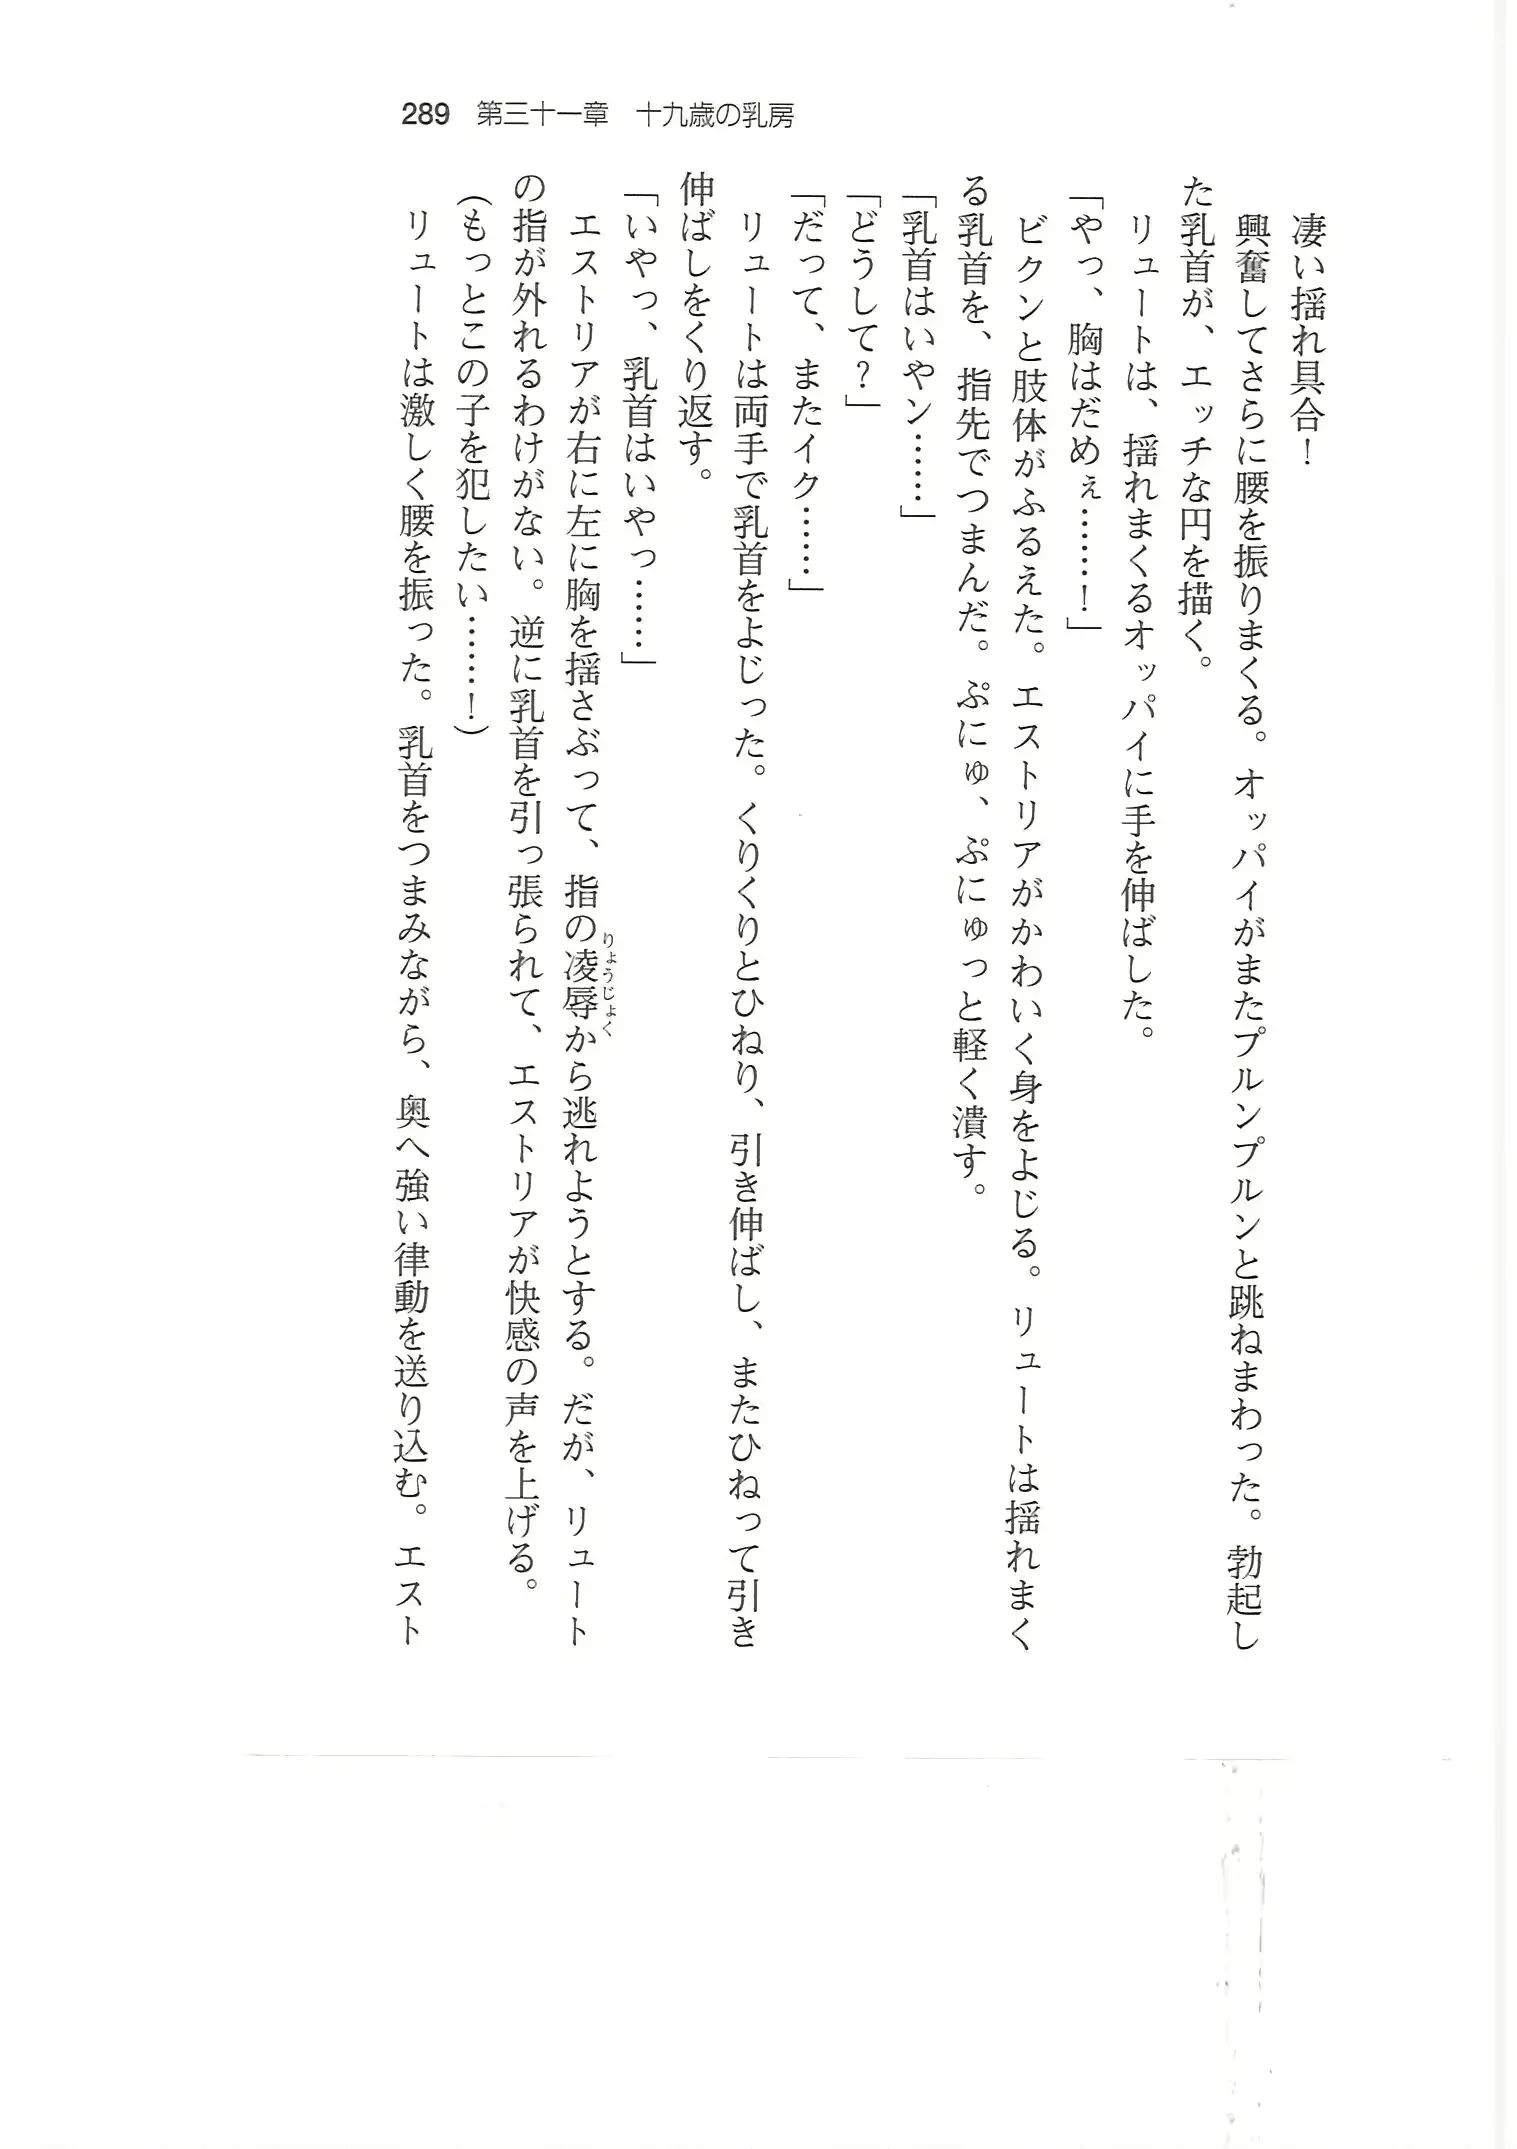 289 第三十一章 十九歳の乳房
凄い揺れ具合!
興奮してさらに腰を振りまくる。オッパイがまたプルンプルンと跳ねまわった。勃起し
た乳首が、エッチな円を描く。
リュートは、揺れまくるオッパイに手を伸ばした。
「やっ、胸はだめぇ……!」
ビクンと肢体がふるえた。エストリアがかわいく身をよじる。リュートは揺れまく
る乳首を、指先でつまんだ。ぷにゅ、ぷにゅっと軽く潰す。
「乳首はいやン……」
「どうして?」
「だって、またイク……」
リュートは両手で乳首をよじった。くりくりとひねり、引き伸ばし、またひねって引き
伸ばしをくり返す。
「いやっ、乳首はいやっ……」
エストリアが右に左に胸を揺さぶって、指の凌辱から逃れようとする。だが、リュート
りょうじょく
の指が外れるわけがない。逆に乳首を引っ張られて、エストリアが快感の声を上げる。
(もっとこの子を犯したい……!)
リュートは激しく腰を振った。乳首をつまみながら、奥へ強い律動を送り込む。エスト